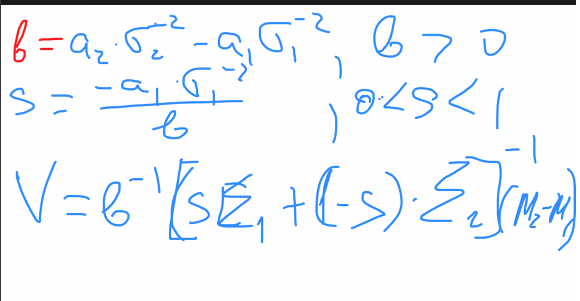 b = a₂·σ₂⁻² - a₁σ₁⁻², b > 0
s = -a₁·σ₁⁻² / b, 0 < s < 1
V = b⁻¹[sΣ₁ + (1-s)·Σ₂]⁻¹(M₂-M₁)